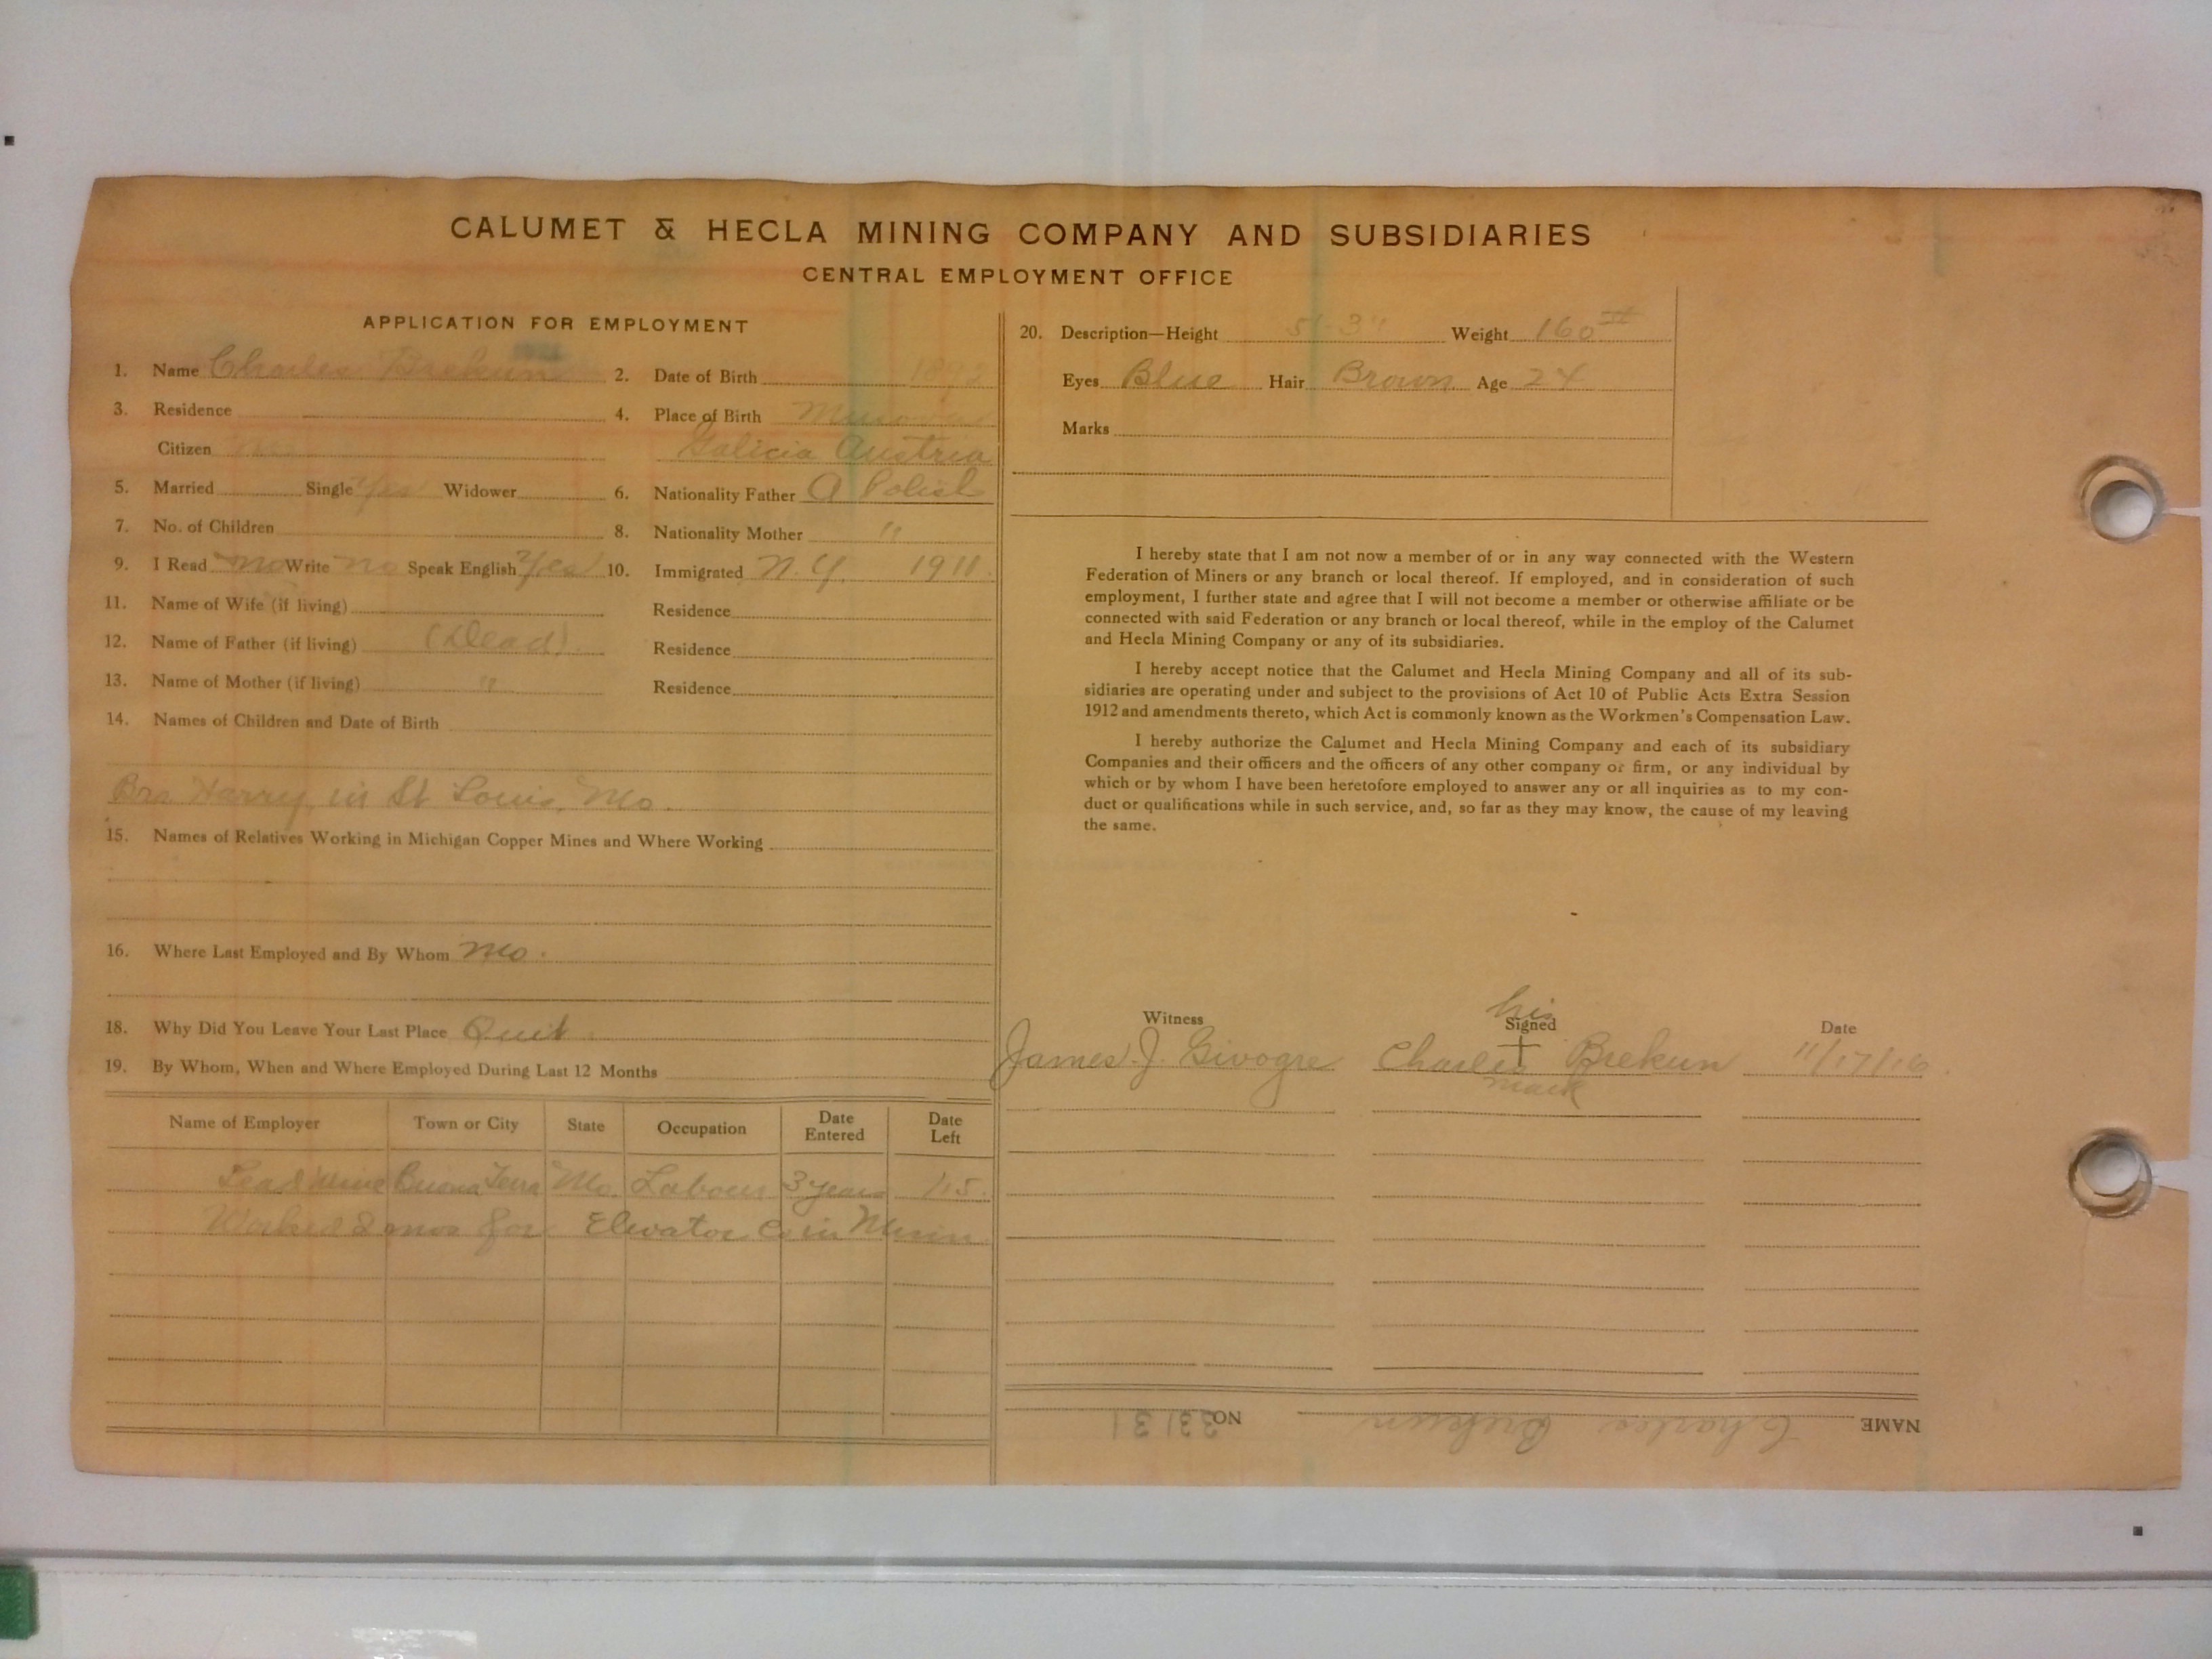 CALUMET & HECLA MINING COMPANY AND SUBSIDIARIES
CENTRAL EMPLOYMENT OFFICE
APPLICATION FOR EMPLOYMENT
1. Name Charles Brekun 2. Date of Birth 1892
3. Residence 4. Place of Birth
Citizen Galicia Austria
5. Married Single Yes Widower 6. Nationality Father A Polish
7. No. of Children 8. Nationality Mother "
9. I Read no Write no Speak English Yes 10. Immigrated N.Y. 1911.
11. Name of Wife (if living) Residence
12. Name of Father (if living) (Dead) Residence
13. Name of Mother (if living) " Residence
14. Names of Children and Date of Birth
Bro Harry, in St Louis, Mo.
15. Names of Relatives Working in Michigan Copper Mines and Where Working
16. Where Last Employed and By Whom Mo.
18. Why Did You Leave Your Last Place Quit
19. By Whom, When and Where Employed During Last 12 Months
Name of Employer Town or City State Occupation Date Entered Date Left
Lead Mine Buona Terra Mo. Labour 3 years 1.15.
Worked 2 mos for Elevator Co in Minn.
20. Description—Height 5'-3" Weight 160
Eyes Blue Hair Brown Age 24
Marks
I hereby state that I am not now a member of or in any way connected with the Western
Federation of Miners or any branch or local thereof. If employed, and in consideration of such
employment, I further state and agree that I will not become a member or otherwise affiliate or be
connected with said Federation or any branch or local thereof, while in the employ of the Calumet
and Hecla Mining Company or any of its subsidiaries.
I hereby accept notice that the Calumet and Hecla Mining Company and all of its sub-
sidiaries are operating under and subject to the provisions of Act 10 of Public Acts Extra Session
1912 and amendments thereto, which Act is commonly known as the Workmen's Compensation Law.
I hereby authorize the Calumet and Hecla Mining Company and each of its subsidiary
Companies and their officers and the officers of any other company or firm, or any individual by
which or by whom I have been heretofore employed to answer any or all inquiries as to my con-
duct or qualifications while in such service, and, so far as they may know, the cause of my leaving
the same.
his
Witness Signed Date
James J. Givogre Charles + Brekun 11/17/16.
mark
NAME Charles Brekun NO. 33131